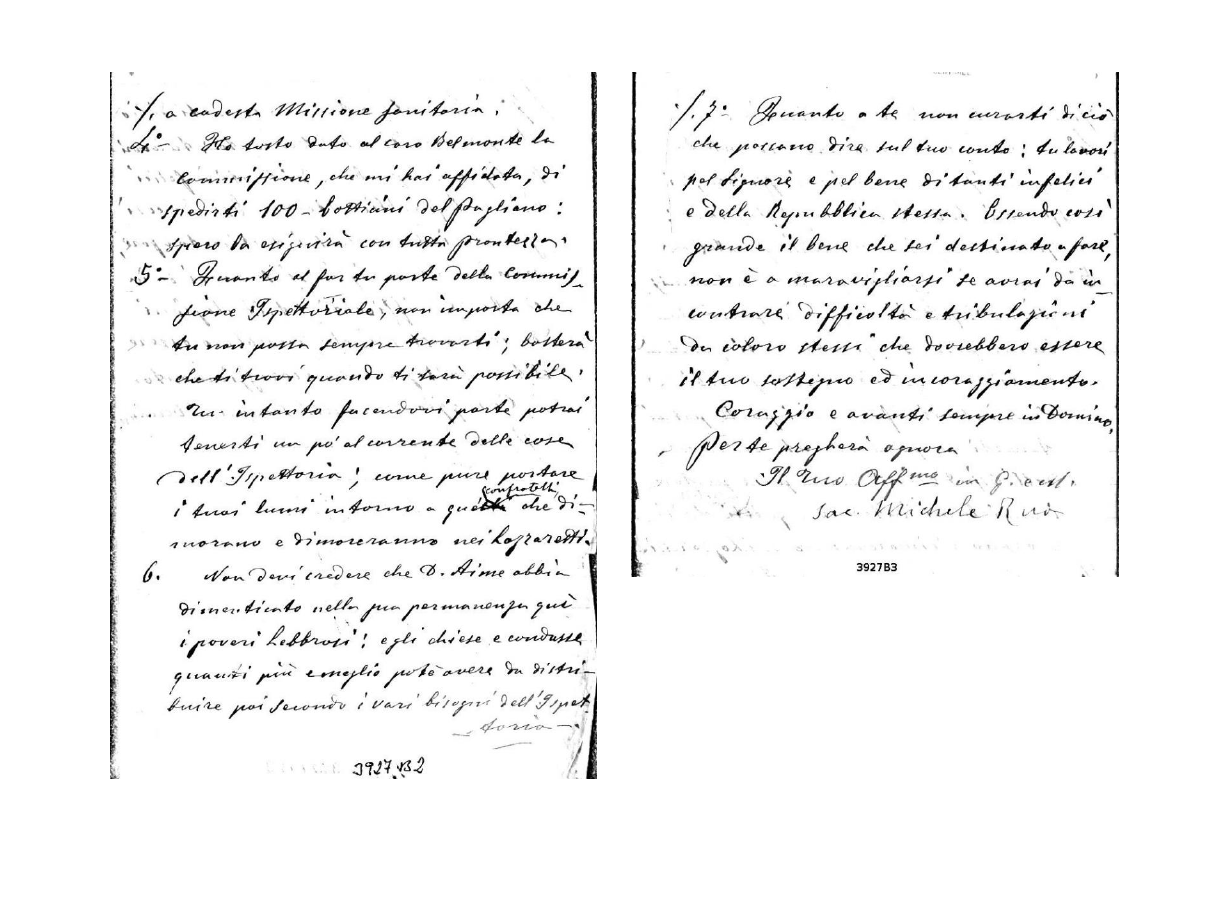 /. a codesta Missione Sanitaria.
4.° Ho tosto dato al caro Belmonte la
Commissione, che mi hai affidata, di
spedirti 100 - bottiani del Pagliano:
spero la esiguirà con tutta prontezza.
5° Quanto al far tu parte della Commis-
sione Ispettoriale, non importa che
tu non possa sempre trovarti; basterà
che ti trovi quando ti sarà possibile.
Tu intanto facendovi parte potrai
tenerti un po' al corrente delle cose
dell'Ispettoria; come pure portare
confratelli
i tuoi lumi intorno a che di-
morano e dimoreranno nei Lazzaretti.
6. Non devi credere che D. Aime abbia
dimenticato nella sua permanenza quì
i poveri Lebbrosi; egli chiese e condusse
quanti più e meglio potè avere da distri-
buire poi secondo i vari bisogni dell'Ispet-
toria -
3927 B2
/. 7° Quanto a te non curarti di ciò
che possano dire sul tuo conto; tu lavori
pel Signore e pel bene di tanti infelici
e della Repubblica stessa. Essendo così
grande il bene che sei destinato a fare,
non è a maravigliarsi se avrai da in-
contrare difficoltà e tribulazioni
da coloro stessi che dovrebbero essere
il tuo sostegno ed incoraggiamento.
Coraggio e avanti sempre in Domino,
Per te pregherà ognora
Il tuo Aff.mo in G. e M.
Sac. Michele Rua
3927B3